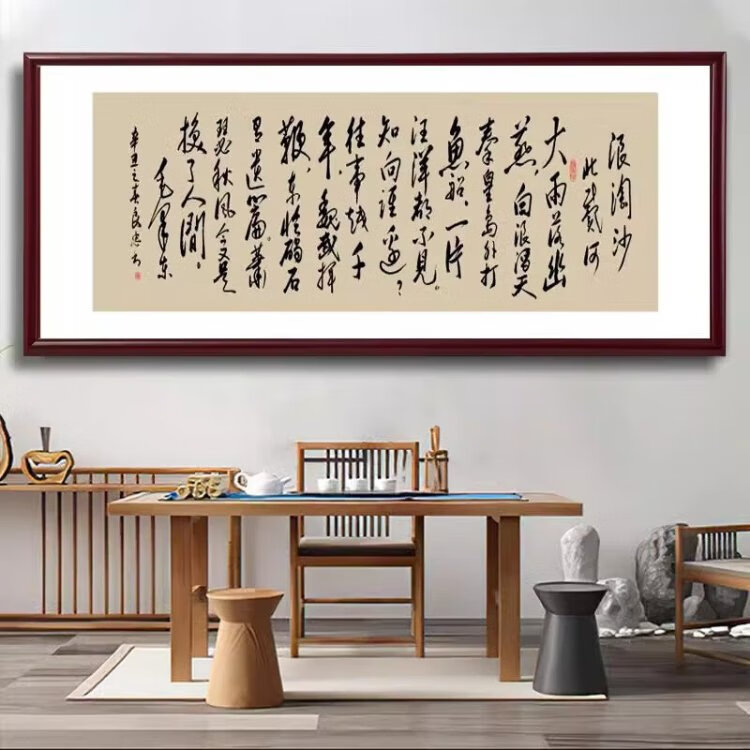 浪淘沙
北戴河
大雨落幽
燕，白浪滔天
秦皇岛外打
魚船，一片
汪洋都不见。
知向谁边？
往事越千
年，魏武挥
鞭，东临碣石
有遗篇。萧
瑟秋风今又是
换了人间。
毛泽东
辛丑之春良忠书